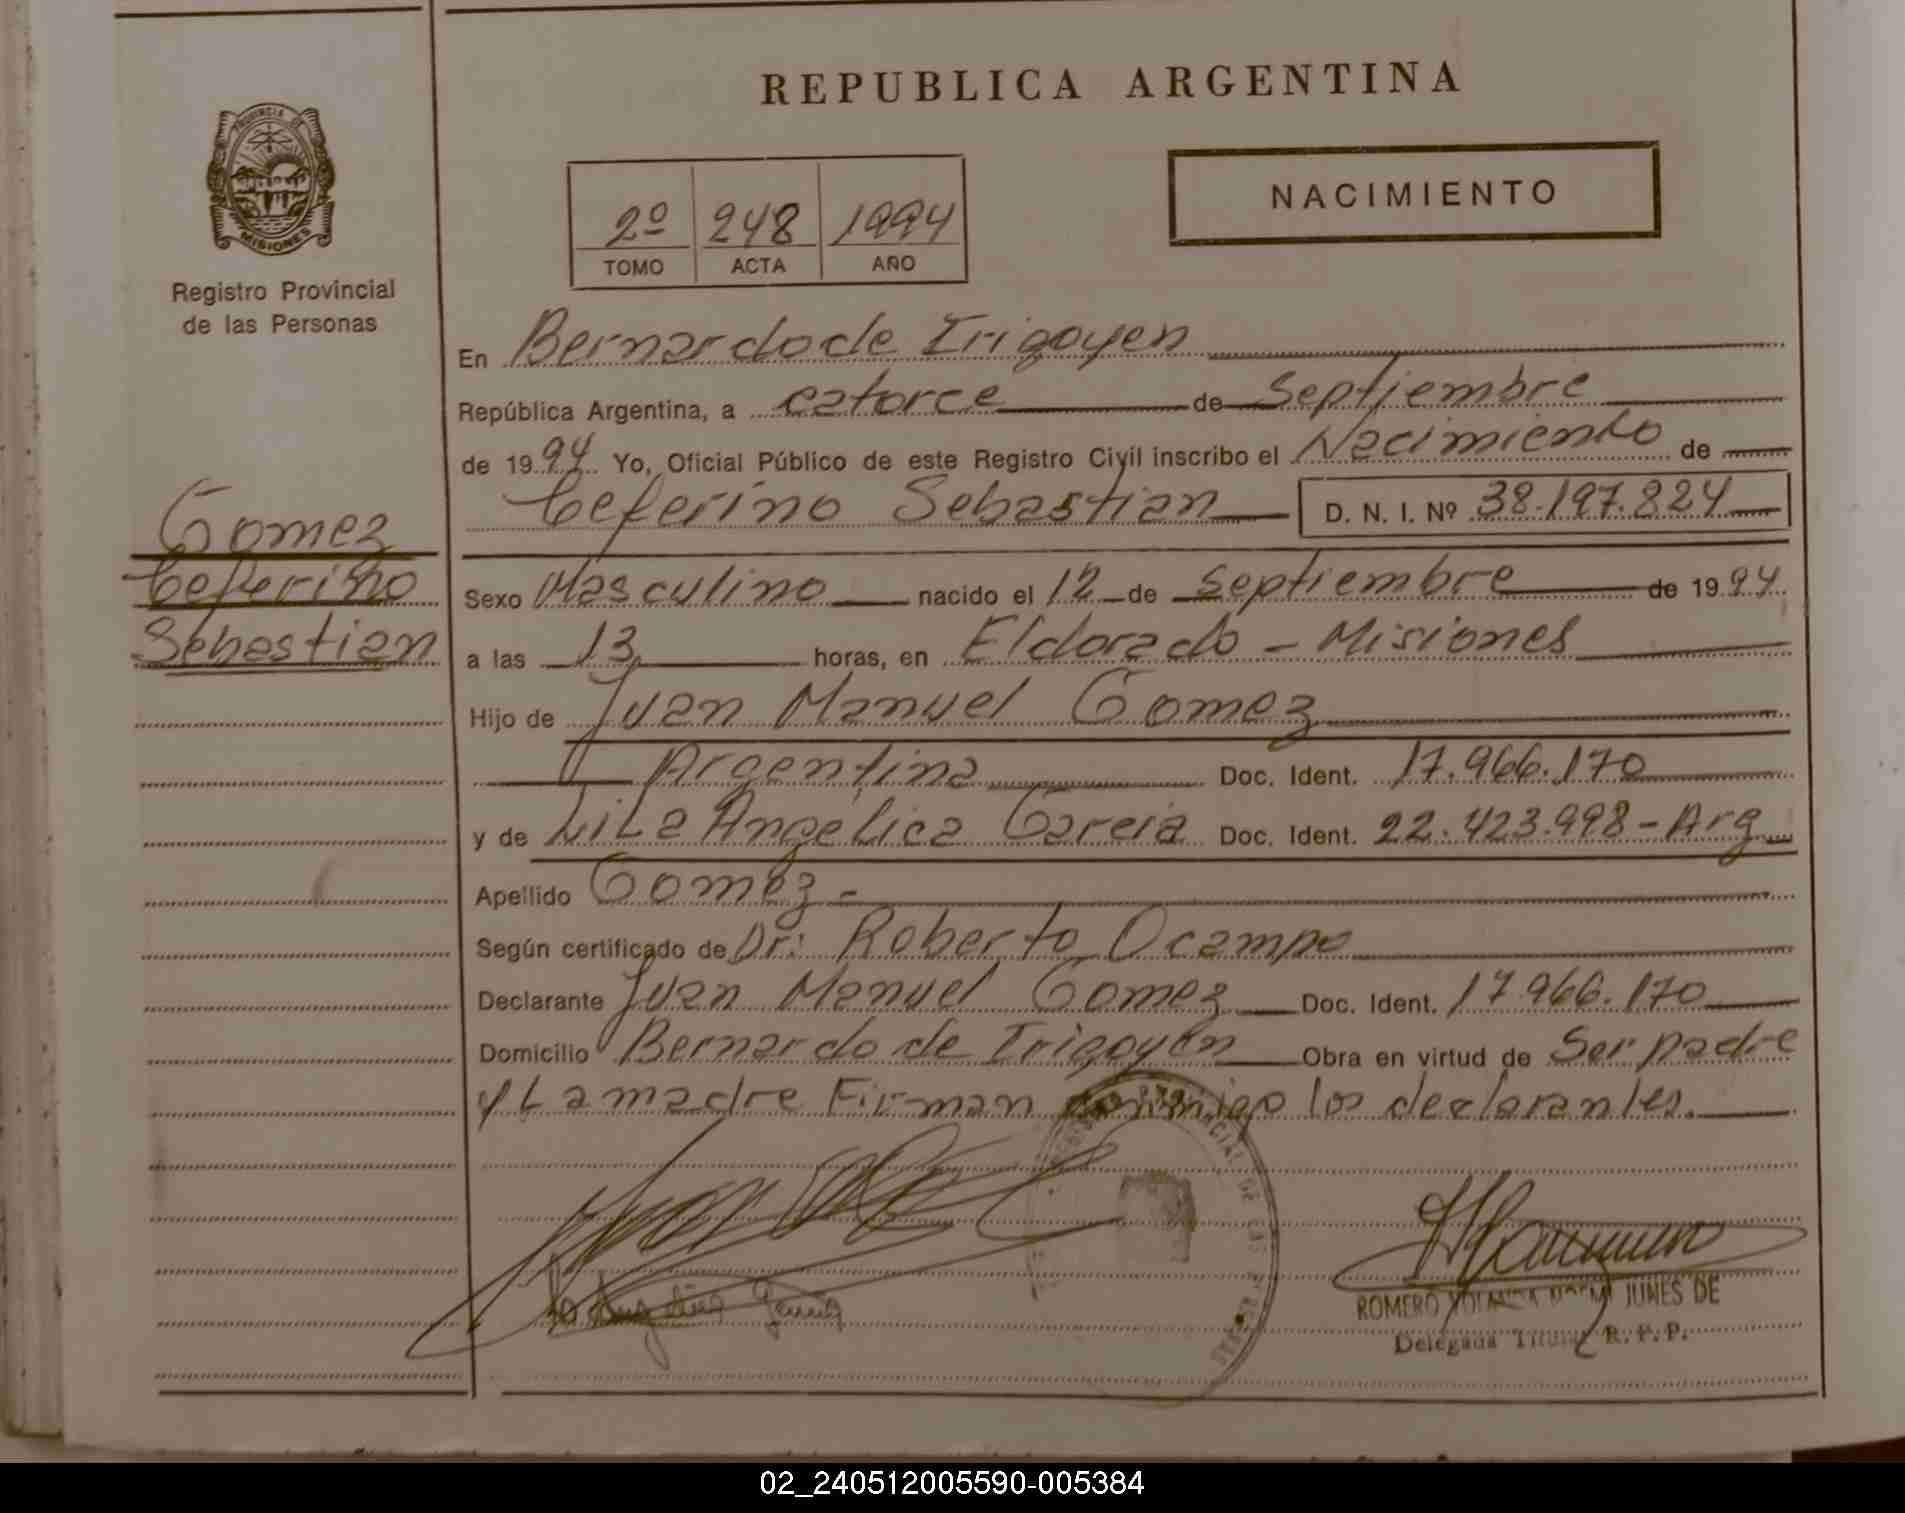 REPUBLICA ARGENTINA
PROVINCIA DE
MISIONES
Registro Provincial
de las Personas
NACIMIENTO
2º 248 1994
TOMO ACTA AÑO
En Bernardo de Irigoyen
República Argentina, a catorce de Septiembre
de 1994 Yo, Oficial Público de este Registro Civil inscribo el Nacimiento de
Ceferino Sebastian D. N. I. Nº 38.197.824
Gomez
Ceferino
Sebastian
Sexo Masculino nacido el 12 de Septiembre de 1994
a las 13 horas, en Eldorado - Misiones
Hijo de Juan Manuel Gomez
Argentina Doc. Ident. 17.966.170
y de Lila Angélica Garcia Doc. Ident. 22.423.998 - Arg
Apellido Gomez -
Según certificado de Dr: Roberto Ocampo
Declarante Juan Manuel Gomez Doc. Ident. 17.966.170
Domicilio Bernardo de Irigoyen Obra en virtud de Ser padre
y La madre Firman conmigo los declarantes.
Garcia
ROMERO YOLANDA NOEMI JUNES DE
Delegada Titular R. P. P.
02_240512005590-005384